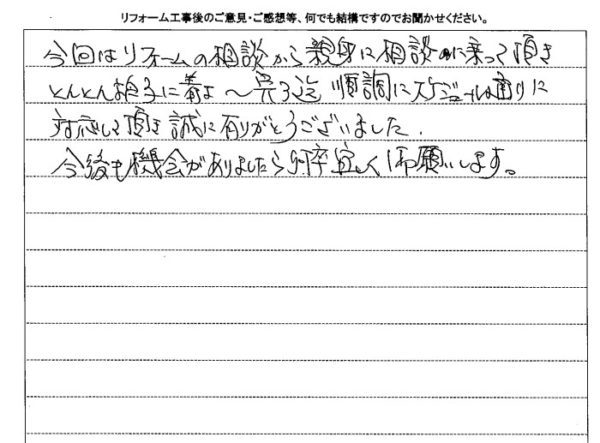 リフォーム工事後のご意見・ご感想等、何でも結構ですのでお聞かせください。
今回はリフォームの相談から親身に相談に乗って頂き
とんとん拍子に着工～完了迄 順調にスケジュール通りに
対応して頂き誠に有りがとうございました。
今後も機会がありましたら何卒宜しく御願いします。